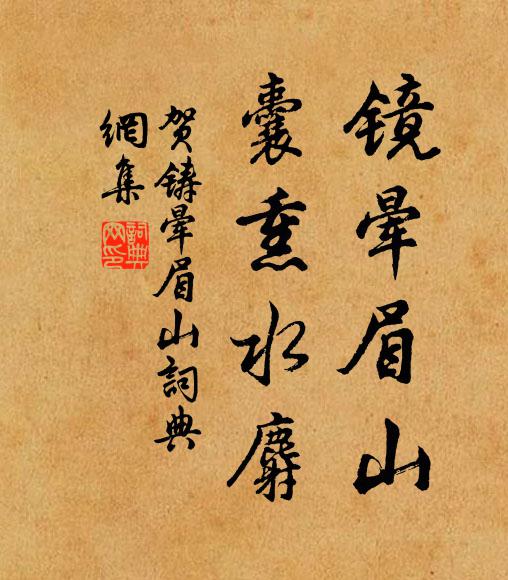 镜晕眉山
囊熏水麝
贺铸晕眉山词典
網集
詞典
网印